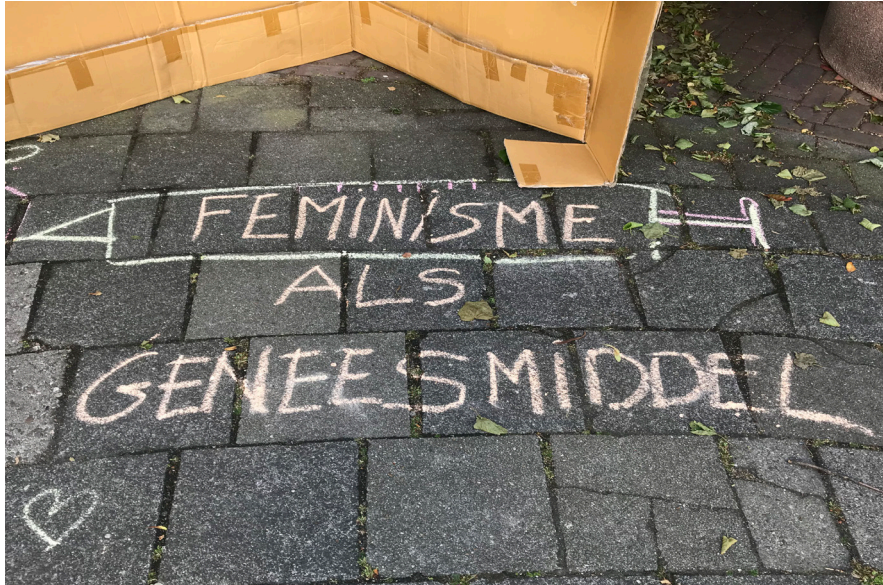 FEMINISME
ALS
GENEESMIDDEL